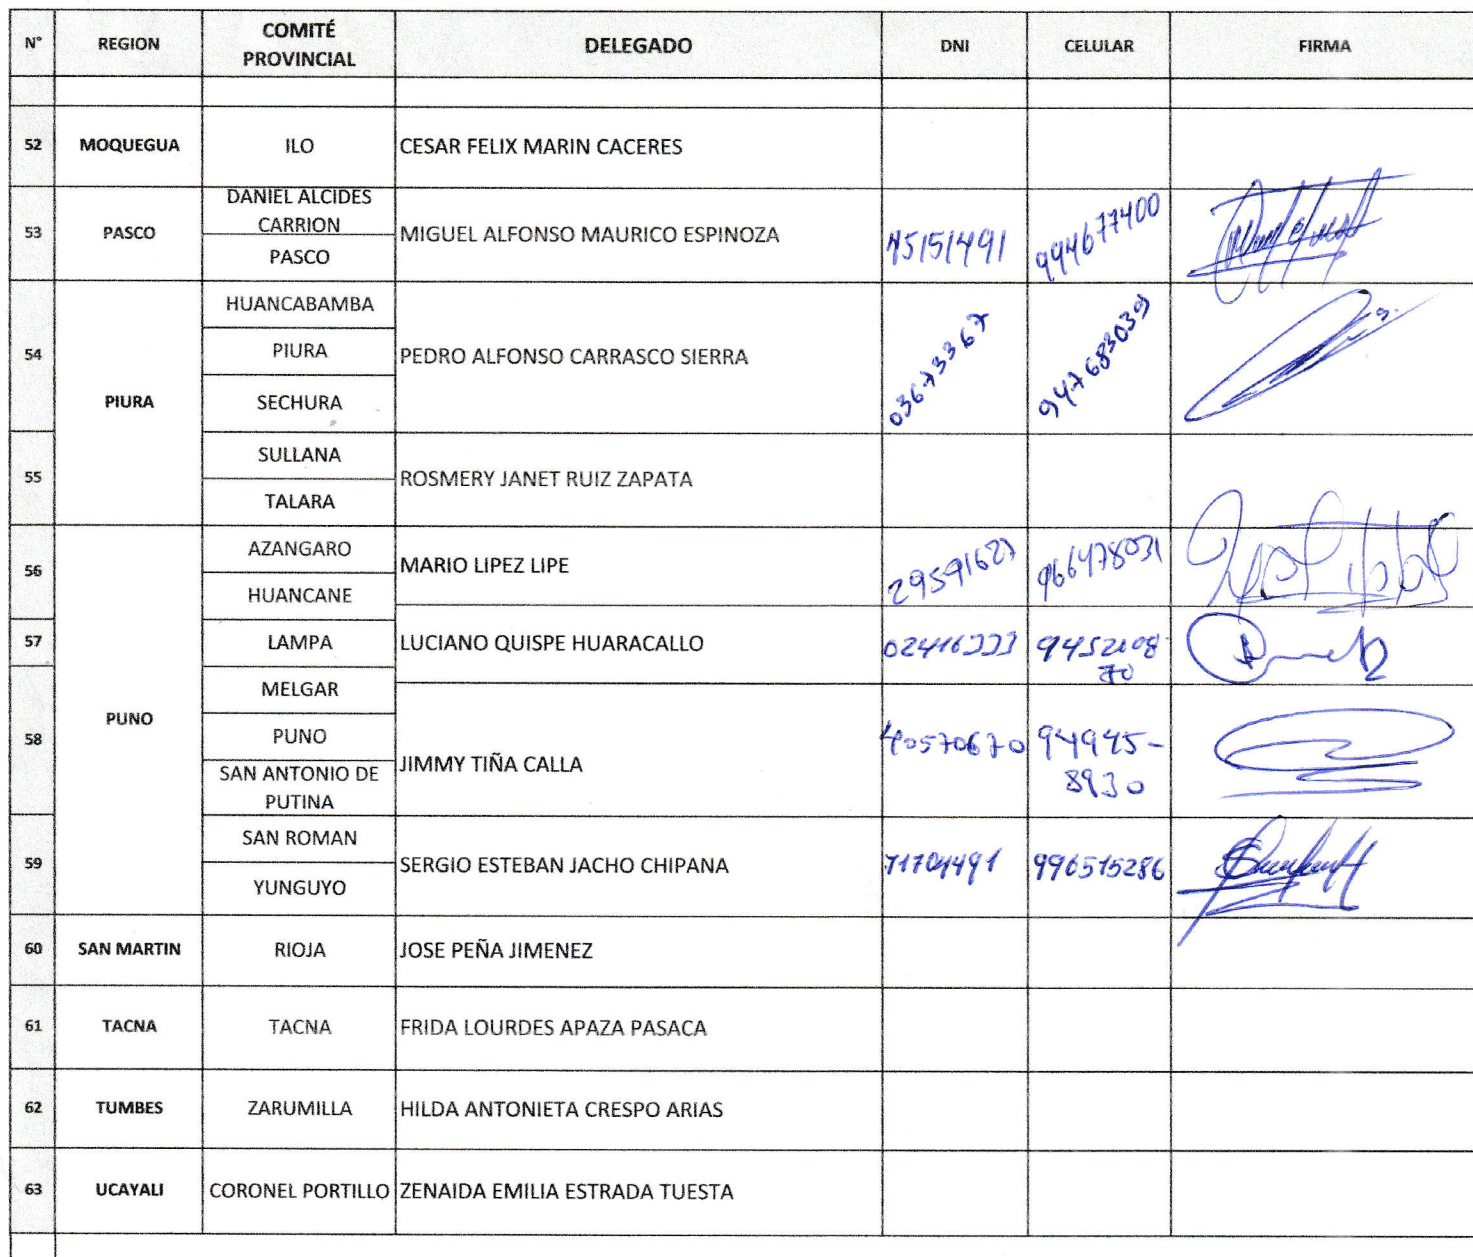 N° REGION COMITÉ PROVINCIAL DELEGADO DNI CELULAR FIRMA
52 MOQUEGUA ILO CESAR FELIX MARIN CACERES
53 PASCO DANIEL ALCIDES CARRION MIGUEL ALFONSO MAURICO ESPINOZA 45151491 994677400
PASCO
PIURA
54 HUANCABAMBA PEDRO ALFONSO CARRASCO SIERRA 03673367 947683039
PIURA
SECHURA
55 SULLANA ROSMERY JANET RUIZ ZAPATA
TALARA
PUNO
56 AZANGARO MARIO LIPEZ LIPE 29591627 966478031
HUANCANE
57 LAMPA LUCIANO QUISPE HUARACALLO
MELGAR
58 PUNO JIMMY TIÑA CALLA 40570670 94945-
8930
SAN ANTONIO DE PUTINA
59 SAN ROMAN SERGIO ESTEBAN JACHO CHIPANA 996515286
YUNGUYO
60 SAN MARTIN RIOJA JOSE PEÑA JIMENEZ
61 TACNA TACNA FRIDA LOURDES APAZA PASACA
62 TUMBES ZARUMILLA HILDA ANTONIETA CRESPO ARIAS
63 UCAYALI CORONEL PORTILLO ZENAIDA EMILIA ESTRADA TUESTA